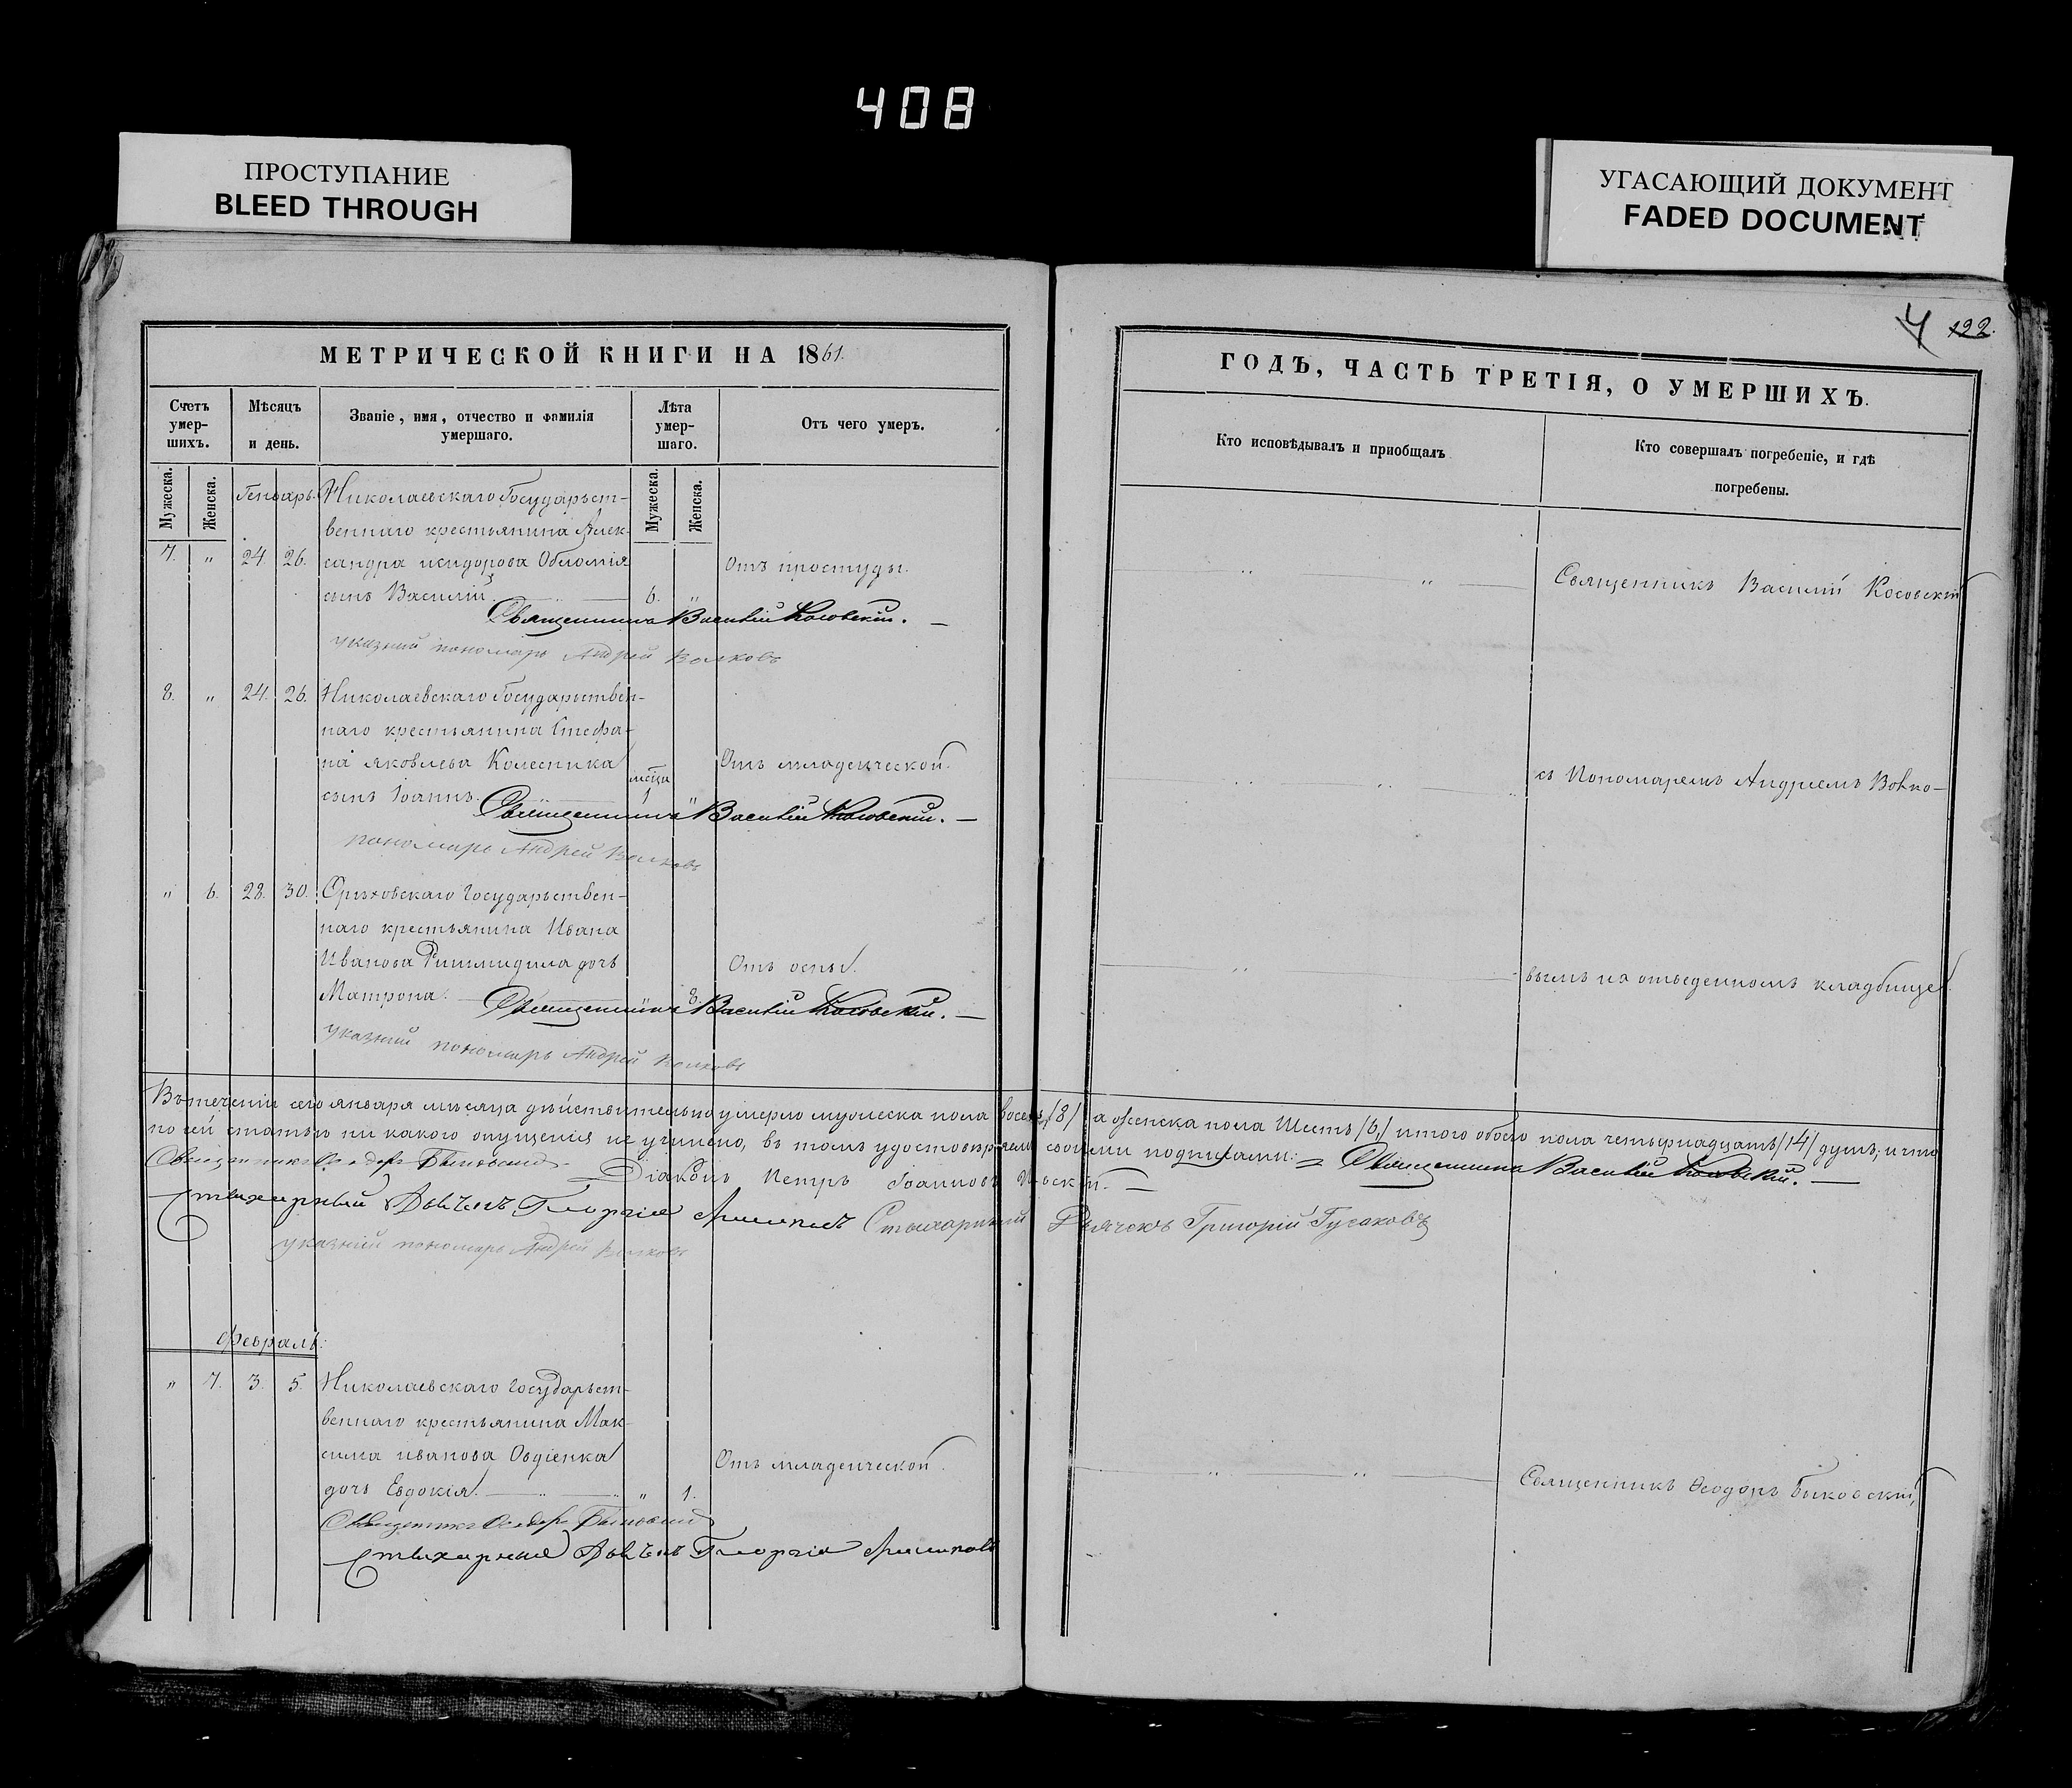 408
ПРОСТУПАНИЕ
BLEED THROUGH
УГАСАЮЩИЙ ДОКУМЕНТ
FADED DOCUMENT
МЕТРИЧЕСКОЙ КНИГИ НА 1861.
Счетъ умер-шихъ.
Мѣсяцъ и день.
Званіе, имя, отчество и фамилія умершаго.
Лѣта умер-шаго.
Отъ чего умеръ.
Мужеска.
Женска.
Мужеска.
Женска.
Генварь.
Николаевскаго Государьст-
веннаго крестьянина Алек-
7. " 24. 26. сандра исидорова Обломія Отъ простуды.
сынъ Василій. 6. "
Священникъ Василій Косовскій.
указний пономарь Андрей Волковъ
8. " 24. 26. Николаевскаго Государьствен-
наго крестьянина Стефа-
на яковлева Колесника Отъ младенческой.
сынъ Іоаннъ. 1 "
Священникъ Василій Косовскій.
пономарь Андрей Волковъ
" 6. 28. 30. Орѣховскаго Государьствен-
наго крестьянина Ивана
Иванова дочь Отъ оспы.
Матрона. 8.
Священникъ Василій Косовскій.
указний пономарь Андрей Волковъ
Въ теченіи сего января мѣсяца дѣйствительно умерло мужеска пола восемь /8/ а женска пола Шесть /6,/ итого обоего пола четырнадцать /14/ душъ; и что
по сей статьѣ ни какого опущенія не учинено, въ томъ удостовѣряемъ своими подписами: Священникъ Василій Косовскій.
Священникъ Ѳеодоръ Быковский
Діаконъ Петръ Іоанновъ
Стихарный Дьячекъ Георгій
Стихарный Дьячекъ Григорій Гусаковъ
указний пономарь Андрей Волковъ
Февраль.
" 7. 3. 5. Николаевскаго Государьст-
веннаго крестьянина Мак-
сима иванова Овдіенка Отъ младенческой.
дочь Евдокія. " 1.
Священникъ Ѳеодоръ Быковский
Стихарный Дьячекъ Георгій
4 122.
ГОДЪ, ЧАСТЬ ТРЕТІЯ, О УМЕРШИХЪ.
Кто исповѣдывалъ и приобщалъ
Кто совершалъ погребеніе, и гдѣ погребены.
Священникъ Василій Косовскій
съ Пономаремъ Андріемъ Волко-
вымъ на отведенномъ кладбище.
Священникъ Ѳеодоръ Биковскій,